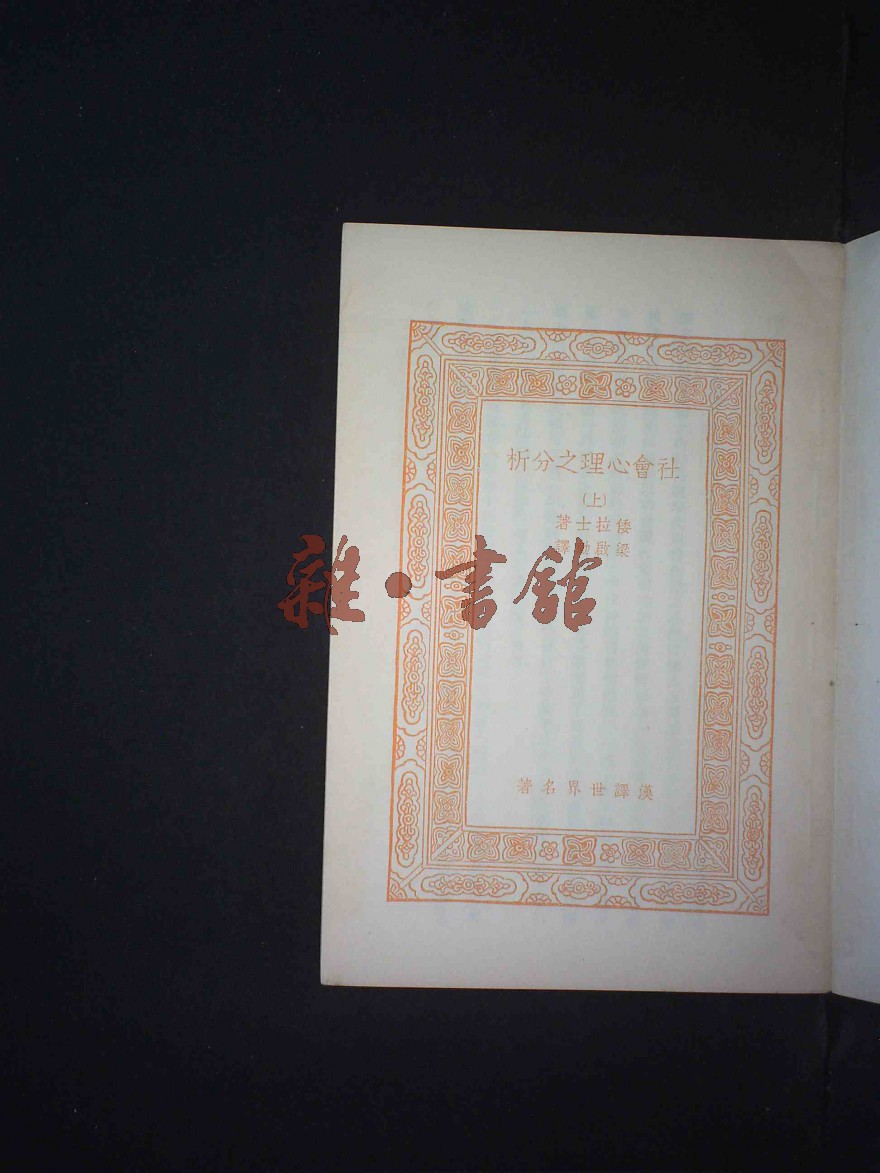 社會心理之分析
(上)
倭拉士著
梁啟勳譯
雜·書舘
漢譯世界名著